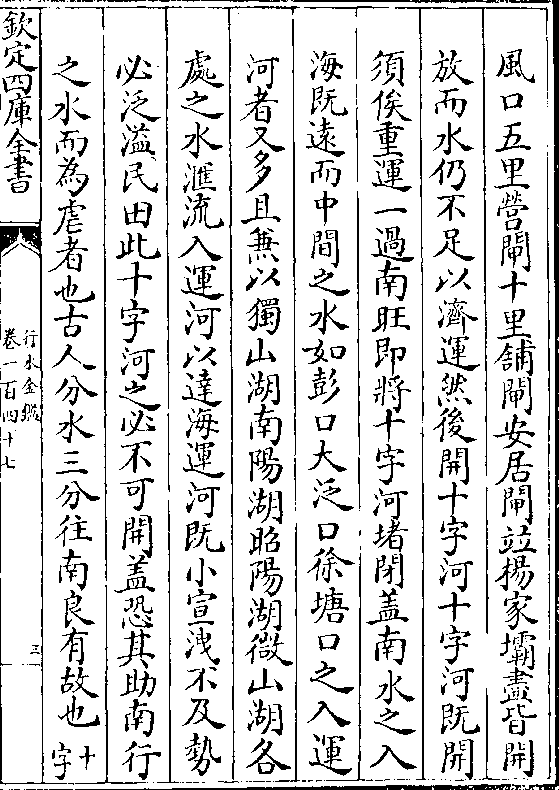 風口五里營閘十里舖閘安居閘並楊家壩盡皆開
放而水仍不足以濟運然後開十字河十字河既開
須俟重運一過南旺即將十字河堵閉盖南水之入
海既遠而中間之水如彭口大泛口徐塘口之入運
河者又多且兼以獨山湖南陽湖昭陽湖微山湖各
處之水滙流入運河以達海運河既小宣洩不及勢
必泛溢民田此十字河之必不可開盖恐其助南行
之水而為虐者也古人分水三分往南良有故也十字
欽定四庫全書
行水金鑑
卷一百四十七
三